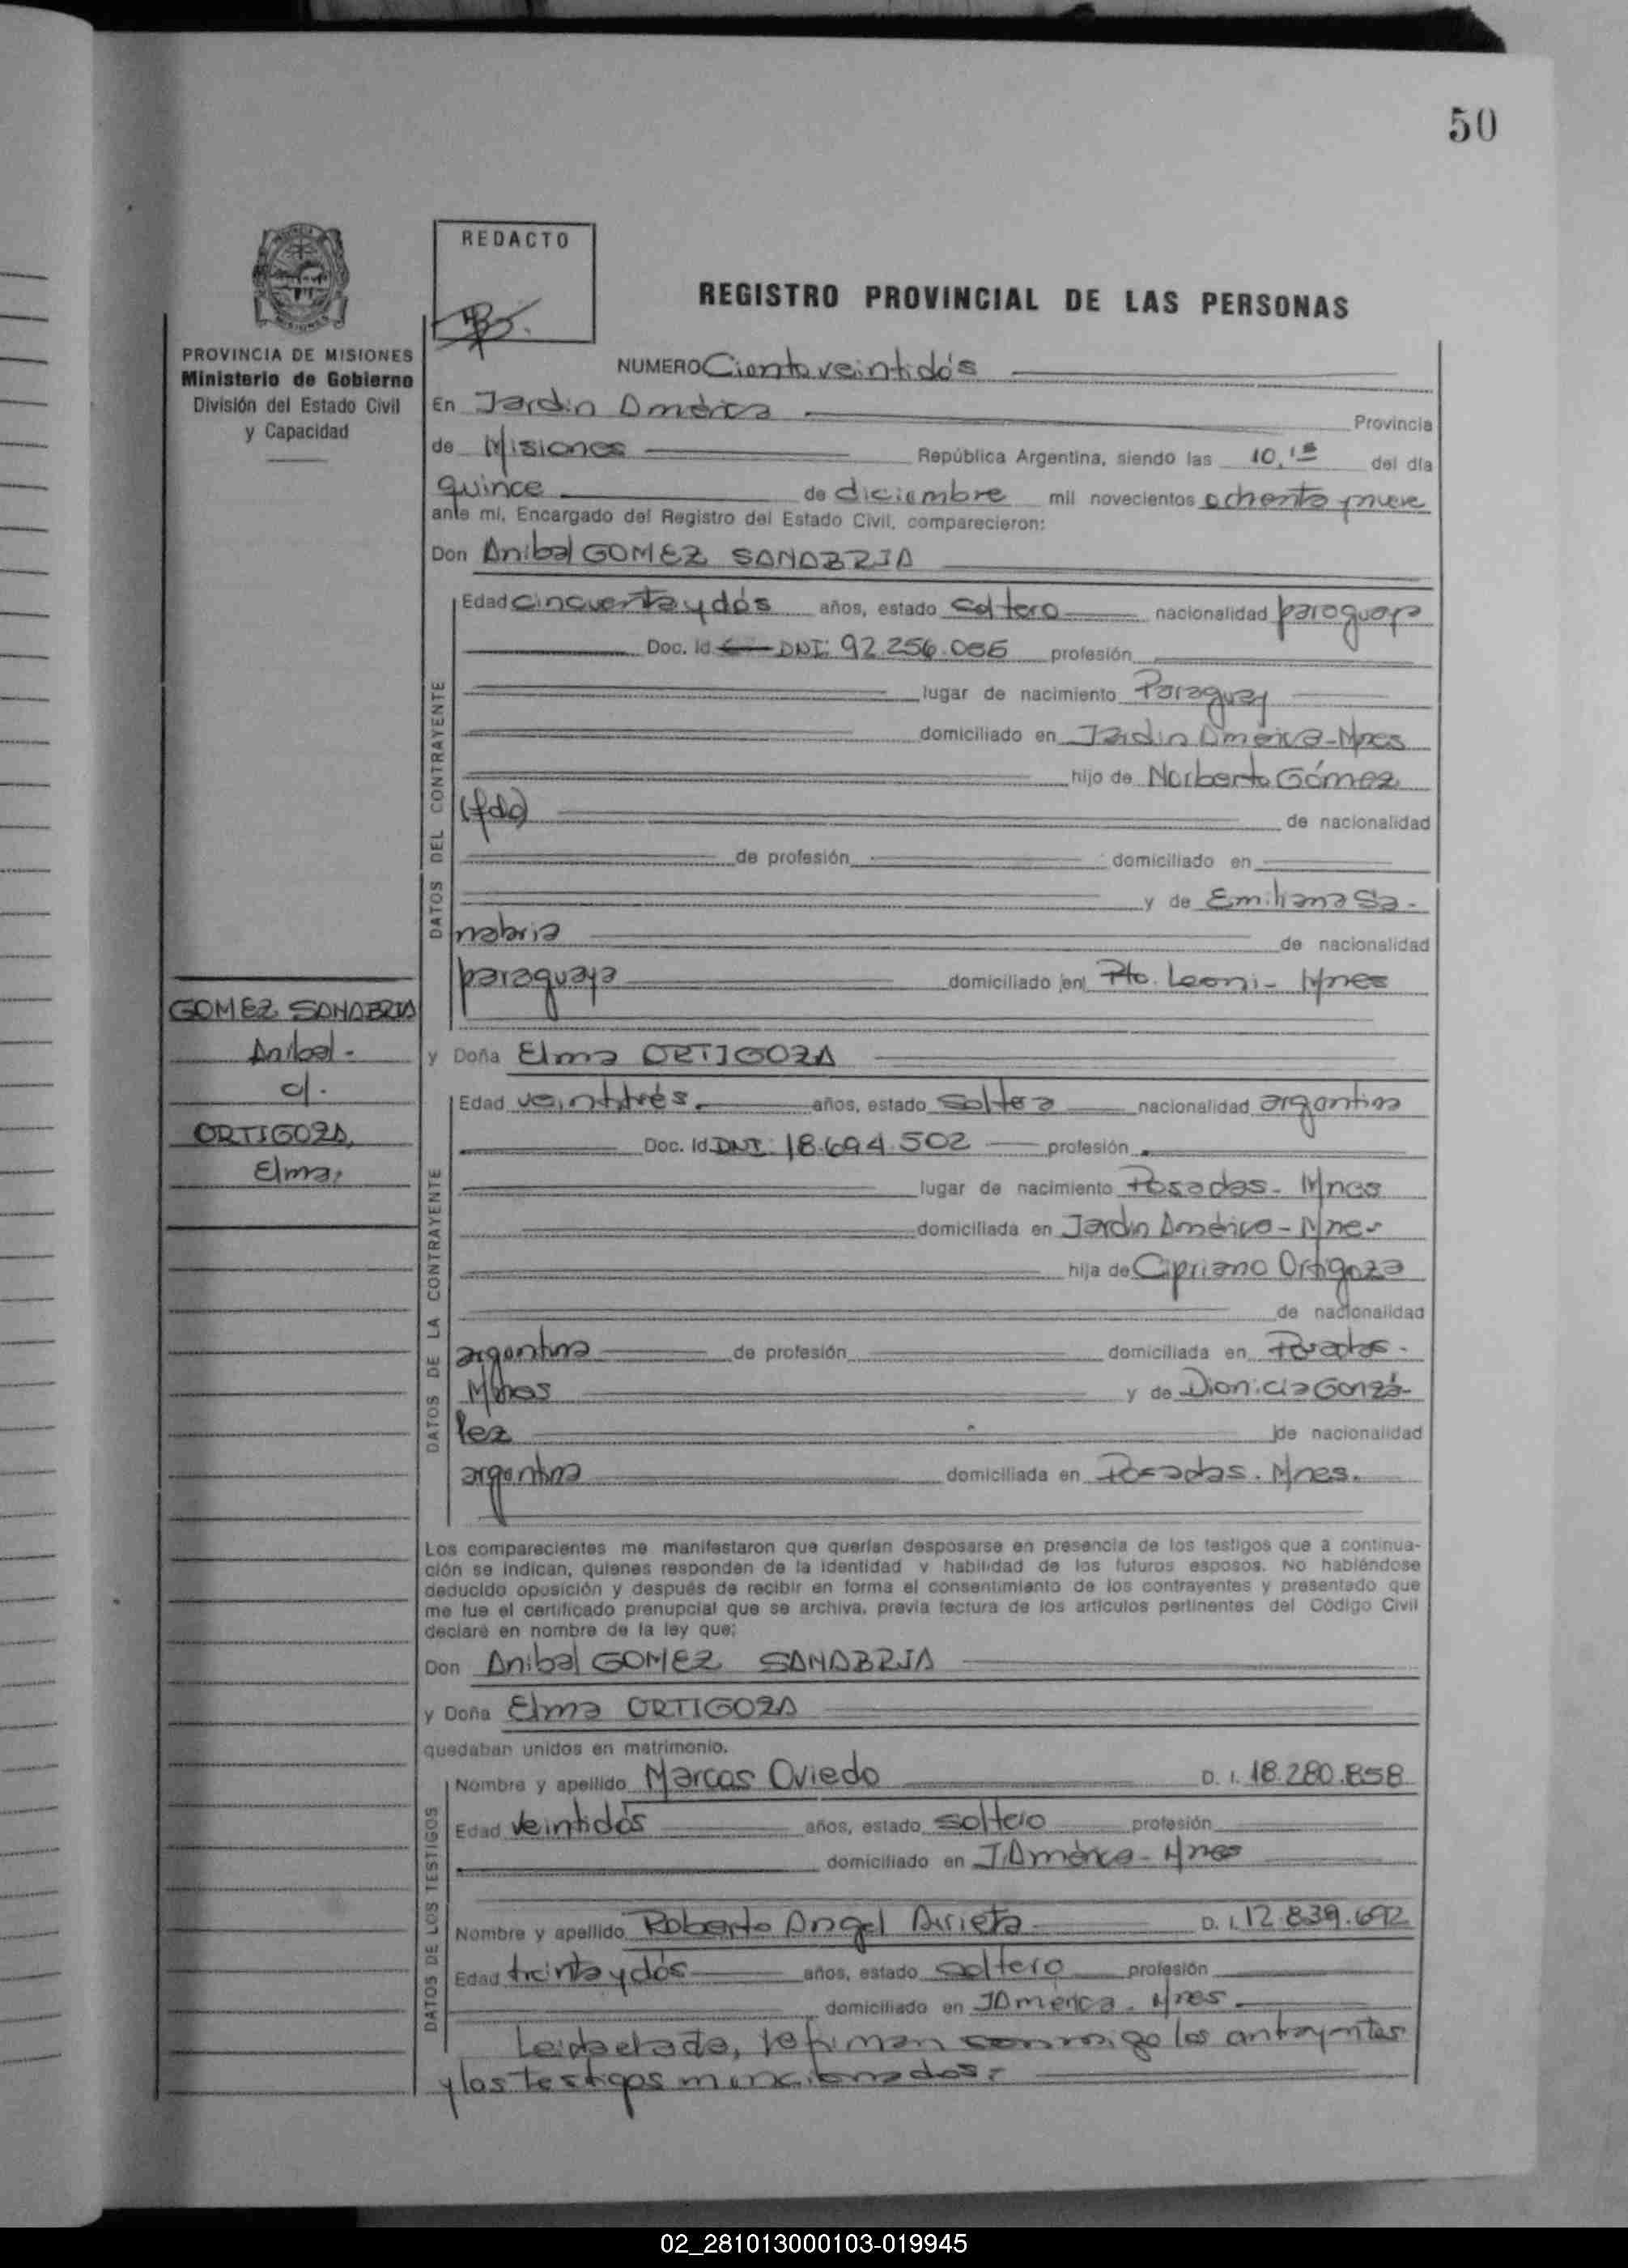 50
REDACTO
REGISTRO PROVINCIAL DE LAS PERSONAS
PROVINCIA DE MISIONES
Ministerio de Gobierno
División del Estado Civil
y Capacidad
NUMERO Ciento veintidós
En Jardin América Provincia
de Misiones República Argentina, siendo las 10,15 del día
quince de diciembre mil novecientos ochenta y nueve
ante mí, Encargado del Registro del Estado Civil, comparecieron:
Don Anibal GOMEZ SANABRIA
DATOS DEL CONTRAYENTE
Edad cincuenta y dós años, estado soltero nacionalidad paraguaya
Doc. Id. DNI: 92.256.086 profesión
lugar de nacimiento Paraguay
domiciliado en Jardin América-Mnes
hijo de Norberto Gómez
(fdo) de nacionalidad
de profesión domiciliado en
y de Emiliana Sa-
nabria de nacionalidad
paraguaya domiciliado en Pto. Leoni- Mnes
GOMEZ SANABRIA
Anibal-
c/.
ORTIGOZA,
Elma,
y Doña Elma ORTIGOZA
DATOS DE LA CONTRAYENTE
Edad veintitrés. años, estado soltera nacionalidad argentina
Doc. Id. DNI: 18.694.502 profesión
lugar de nacimiento Posadas- Mnes
domiciliada en Jardin América-Mnes
hija de Cipriano Ortigoza
de nacionalidad
argentina de profesión domiciliada en Posadas-
Mnes y de Dionicia Gonzá-
lez de nacionalidad
argentina domiciliada en Posadas. Mnes.
Los comparecientes me manifestaron que querían desposarse en presencia de los testigos que a continua-
ción se indican, quienes responden de la identidad y habilidad de los futuros esposos. No habiéndose
deducido oposición y después de recibir en forma el consentimiento de los contrayentes y presentado que
me fue el certificado prenupcial que se archiva, previa lectura de los artículos pertinentes del Código Civil
declaré en nombre de la ley que:
Don Anibal GOMEZ SANABRIA
y Doña Elma ORTIGOZA
quedaban unidos en matrimonio.
DATOS DE LOS TESTIGOS
Nombre y apellido Marcos Oviedo D. I. 18.280.858
Edad veintidós años, estado soltero profesión
domiciliado en J.América- Mnes
Nombre y apellido Roberto Angel Arrieta D. I. 12.839.692
Edad treinta y dós años, estado soltero profesión
domiciliado en JAmérica. Mnes
Leida el acta, la firman conmigo los contrayentes
y los testigos mencionados.-
02_281013000103-019945